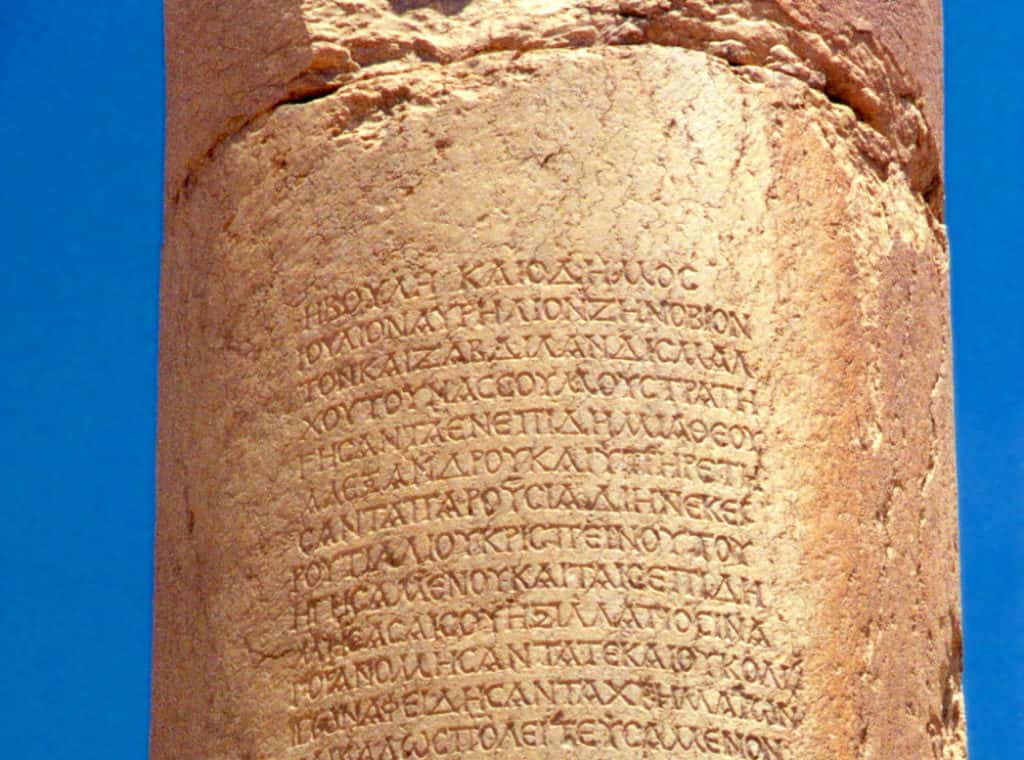 ΗΒΟΥΛΗ ΚΑΙΟΔΗΜΟϹ
ΙΟΥΛΙΟΝΑΥΡΗΛΙΟΝΖΗΝΟΒΙΟΝ
ΤΟΝΚΑΙΖΑΒΔΙΛΑΝΔΙϹΜΑΛ
ΧΟΥΤΟΥΝΑϹϹΟΥΜΟΥϹΤΡΑΤΗ
ΓΗϹΑΝΤΑΕΝΕΠΙΔΗΜΙΑΘΕΟΥ
ΑΛΕΞΑΝΔΡΟΥΚΑΙΥΠΗΡΕΤΗ
ϹΑΝΤΑΠΑΡΟΥϹΙΑΔΙΗΝΕΚΕΙ
ΡΟΥΤΙΛΛΙΟΥΚΡΙϹΠΕΙΝΟΥΤΟΥ
ΗΓΗϹΑΜΕΝΟΥΚΑΙΤΑΙϹΕΠΙΔΗ
ΜΗϹΑϹΑΙϹΟΥΗΞΙΛΛΑΤΙΟϹΙΝΑ
ΓΟΡΑΝΟΜΗϹΑΝΤΑΤΕΚΑΙΟΥΚΟΛΙ
ΓΩΝΑΦΕΙΔΗϹΑΝΤΑΧΡΗΜΑΤΩΝ
ΚΑΙΚΑΛΩϹΠΟΛΕΙΤΕΥϹΑΜΕΝΟΝ